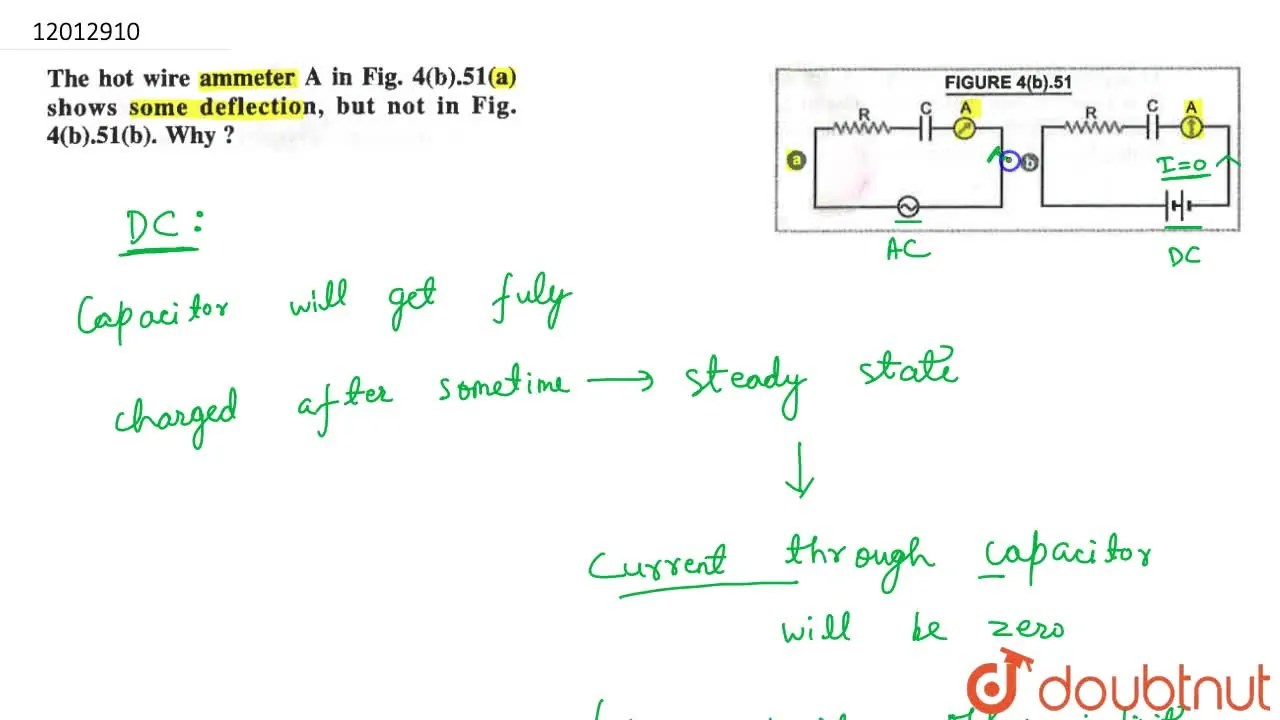 12012910
The hot wire ammeter A in Fig. 4(b).51(a)
shows some deflection, but not in Fig.
4(b).51(b). Why ?
FIGURE 4(b).51
R C A
a
AC
R C A
b
I=0
DC
DC:
Capacitor will get fuly
charged after sometime → steady state
↓
Current through capacitor
will be zero
doubtnut